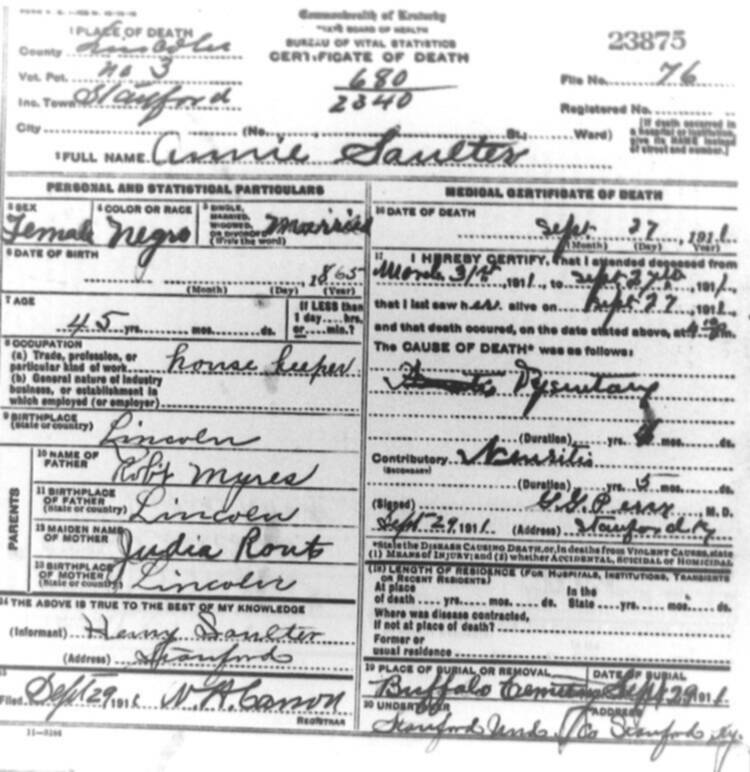 Commonwealth of Kentucky
STATE BOARD OF HEALTH
BUREAU OF VITAL STATISTICS
CERTIFICATE OF DEATH
23875
1 PLACE OF DEATH
County Lincoln
Vot. Pct. No 3
Inc. Town Stanford
City (No. St., Ward)
680
2340
File No. 76
Registered No.
[If death occurred in a hospital or institution, give its NAME instead of street and number.]
2 FULL NAME Annie Saulter
PERSONAL AND STATISTICAL PARTICULARS
3 SEX Female
4 COLOR OR RACE Negro
5 SINGLE, MARRIED, WIDOWED, OR DIVORCED (Write the word) Married
6 DATE OF BIRTH
1865
(Month) (Day) (Year)
7 AGE
45 yrs. mos. ds.
If LESS than 1 day, hrs. or min.?
8 OCCUPATION
(a) Trade, profession, or particular kind of work house keeper
(b) General nature of industry business, or establishment in which employed (or employer)
9 BIRTHPLACE
(State or country) Lincoln
PARENTS
10 NAME OF FATHER Robt Myres
11 BIRTHPLACE OF FATHER (State or country) Lincoln
12 MAIDEN NAME OF MOTHER Judia Rout
13 BIRTHPLACE OF MOTHER (State or country) Lincoln
14 THE ABOVE IS TRUE TO THE BEST OF MY KNOWLEDGE
(Informant) Henry Saulter
(Address) Stanford
15
Filed Sept 29 1911 N. A. Carson
REGISTRAR
11-3286
MEDICAL CERTIFICATE OF DEATH
16 DATE OF DEATH
Sept 27, 1911
(Month) (Day) (Year)
17 I HEREBY CERTIFY, That I attended deceased from
March 31st, 1911, to Sept 27th, 1911,
that I last saw her alive on Sept 27, 1911,
and that death occured, on the date stated above, at
The CAUSE OF DEATH* was as follows:
Dysentary
(Duration) yrs. mos. ds.
Contributory Neuritis
(SECONDARY)
(Duration) yrs. 5 mos. ds.
(Signed) M. D.
Sept. 29, 1911 (Address) Stanford Ky
*State the DISEASE CAUSING DEATH, or, in deaths from VIOLENT CAUSES, state
(1) MEANS OF INJURY; and (2) whether ACCIDENTAL, SUICIDAL or HOMICIDAL
(18) LENGTH OF RESIDENCE (FOR HOSPITALS, INSTITUTIONS, TRANSIENTS OR RECENT RESIDENTS)
At place of death yrs. mos. ds. In the State yrs. mos. ds.
Where was disease contracted,
If not at place of death?
Former or
usual residence
19 PLACE OF BURIAL OR REMOVAL DATE OF BURIAL
Buffalo Cemetery Sept 29 1911
20 UNDERTAKER ADDRESS
Stanford Und. Co Stanford, Ky.